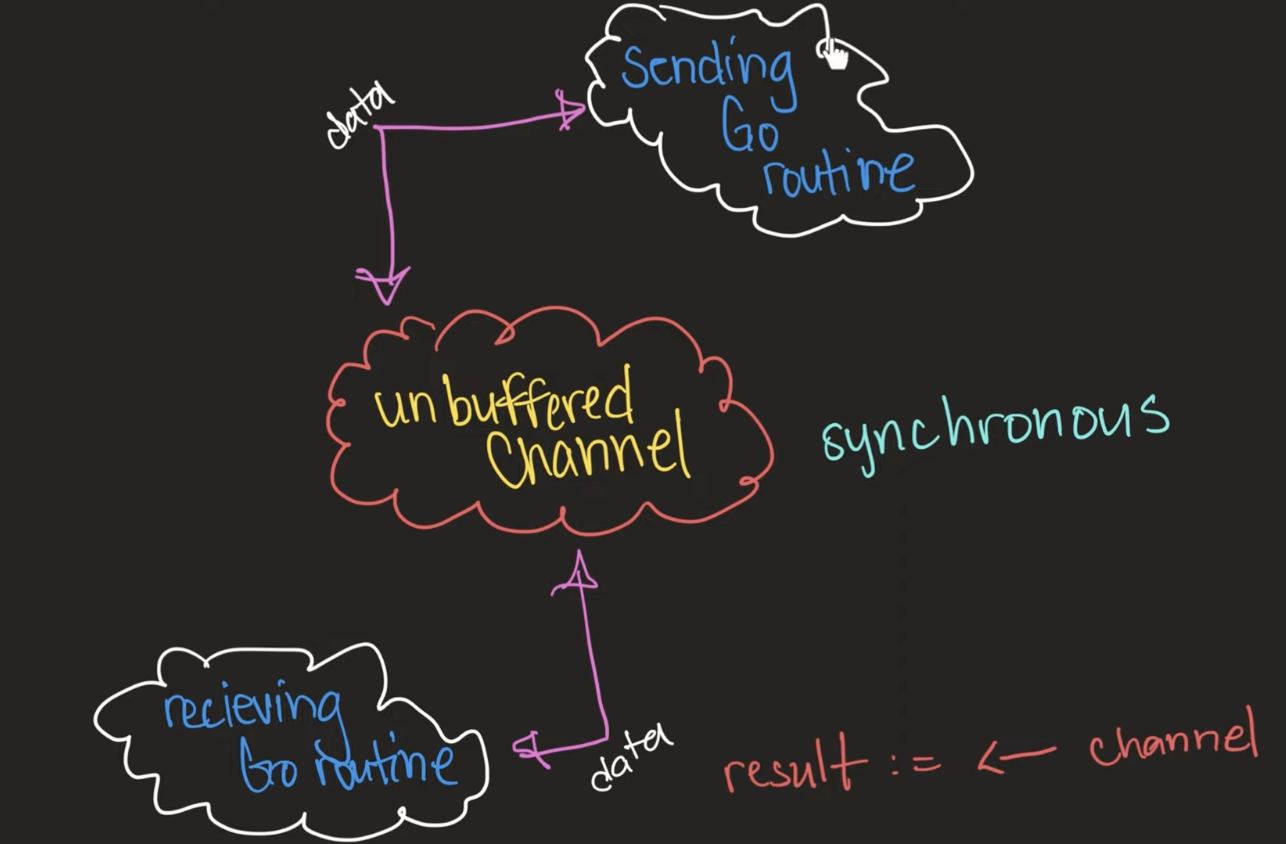 Sending
Go
routine
data
unbuffered
Channel
synchronous
recieving
Go routine
data
result := <— channel